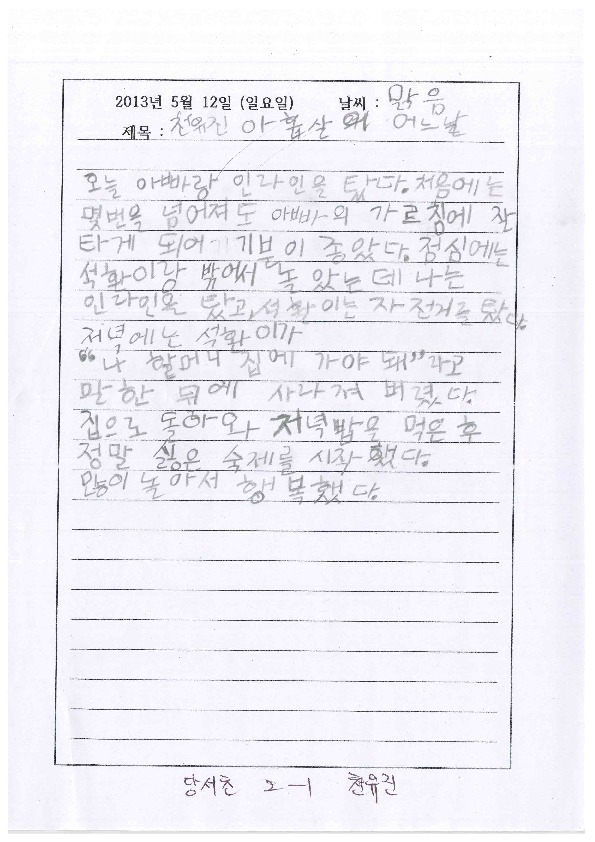 2013년 5월 12일 (일요일) 날씨 : 맑음
제목 : 천유진 아홉살의 어느날
오늘 아빠랑 인라인을 탔다. 처음에는
몇번을 넘어져도 아빠의 가르침에 잘
타게 되어 기분이 좋았다. 점심에는
석환이랑 밖에서 놀았는데 나는
인라인을 탔고, 석환이는 자전거를 탔다.
저녁에는 석환이가
“나 할머니 집에 가야 돼”라고
말한 뒤에 사라져 버렸다.
집으로 돌아와 저녁밥을 먹은 후
정말 싫은 숙제를 시작했다.
많이 놀아서 행복했다.
당서초 2-1 천유진